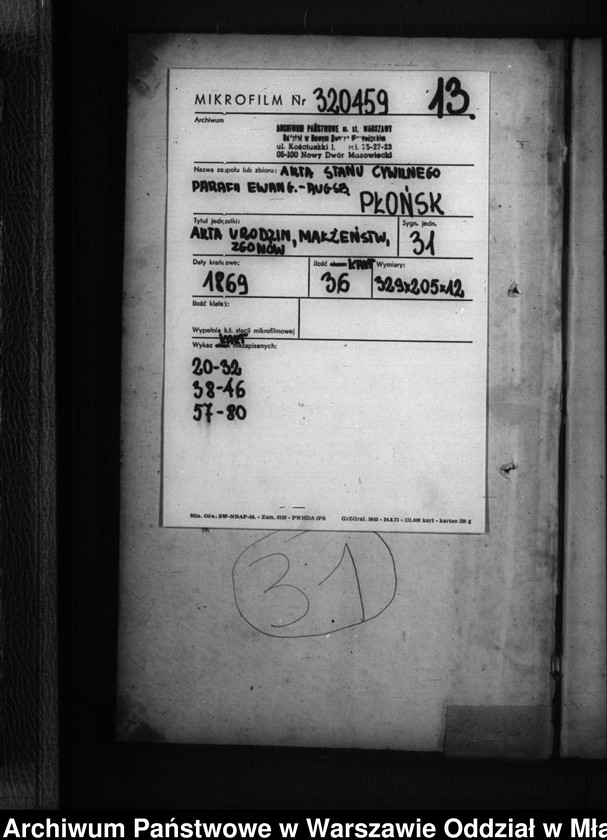 MIKROFILM Nr 320459 13.
Archiwum
ARCHIWUM PAŃSTWOWE m. st. WARSZAWY
Oddział w Nowym Dworze Mazowieckim
ul. Kościuszki 1. tel. 75-27-23
05-100 Nowy Dwór Mazowiecki
Nazwa zespołu lub zbioru: AKTA STANU CYWILNEGO
PARAFII EWANG.-AUGSB.
PŁOŃSK
Tytuł jednostki: Sygn. jedn.
AKTA URODZIN, MAŁŻEŃSTW, 31
ZGONÓW
Daty krańcowe: Ilość KART Wymiary:
1869 36 329x205x12
Ilość klatek:
Wypełnia k.t. stacji mikrofilmowej
KART
Wykaz niezapisanych:
20-32
38-46
57-80
31
Archiwum Państwowe w Warszawie Oddział w Mła